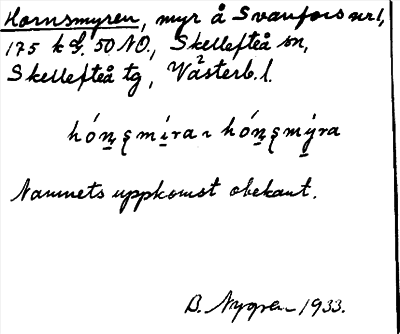 Hornsmyren, myr å Svanfors url,
175 k S. 50 NO., Skellefteå sn,
Skellefteå tg, Västerb. l.
2
Namnets uppkomst obekant.
B. Nygren 1933.